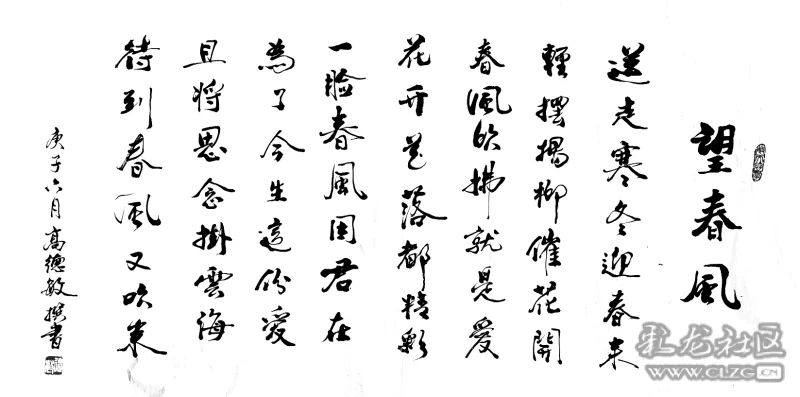 望春風
送走寒冬迎春来
輕擺楊柳催花開
春風吹拂就是愛
花开花落都精彩
一臉春風因君在
為了今生這份愛
且将思念掛雲海
待到春風又吹来
庚子六月高德敏撰書
虬龙社区
WWW.CLZG.CN